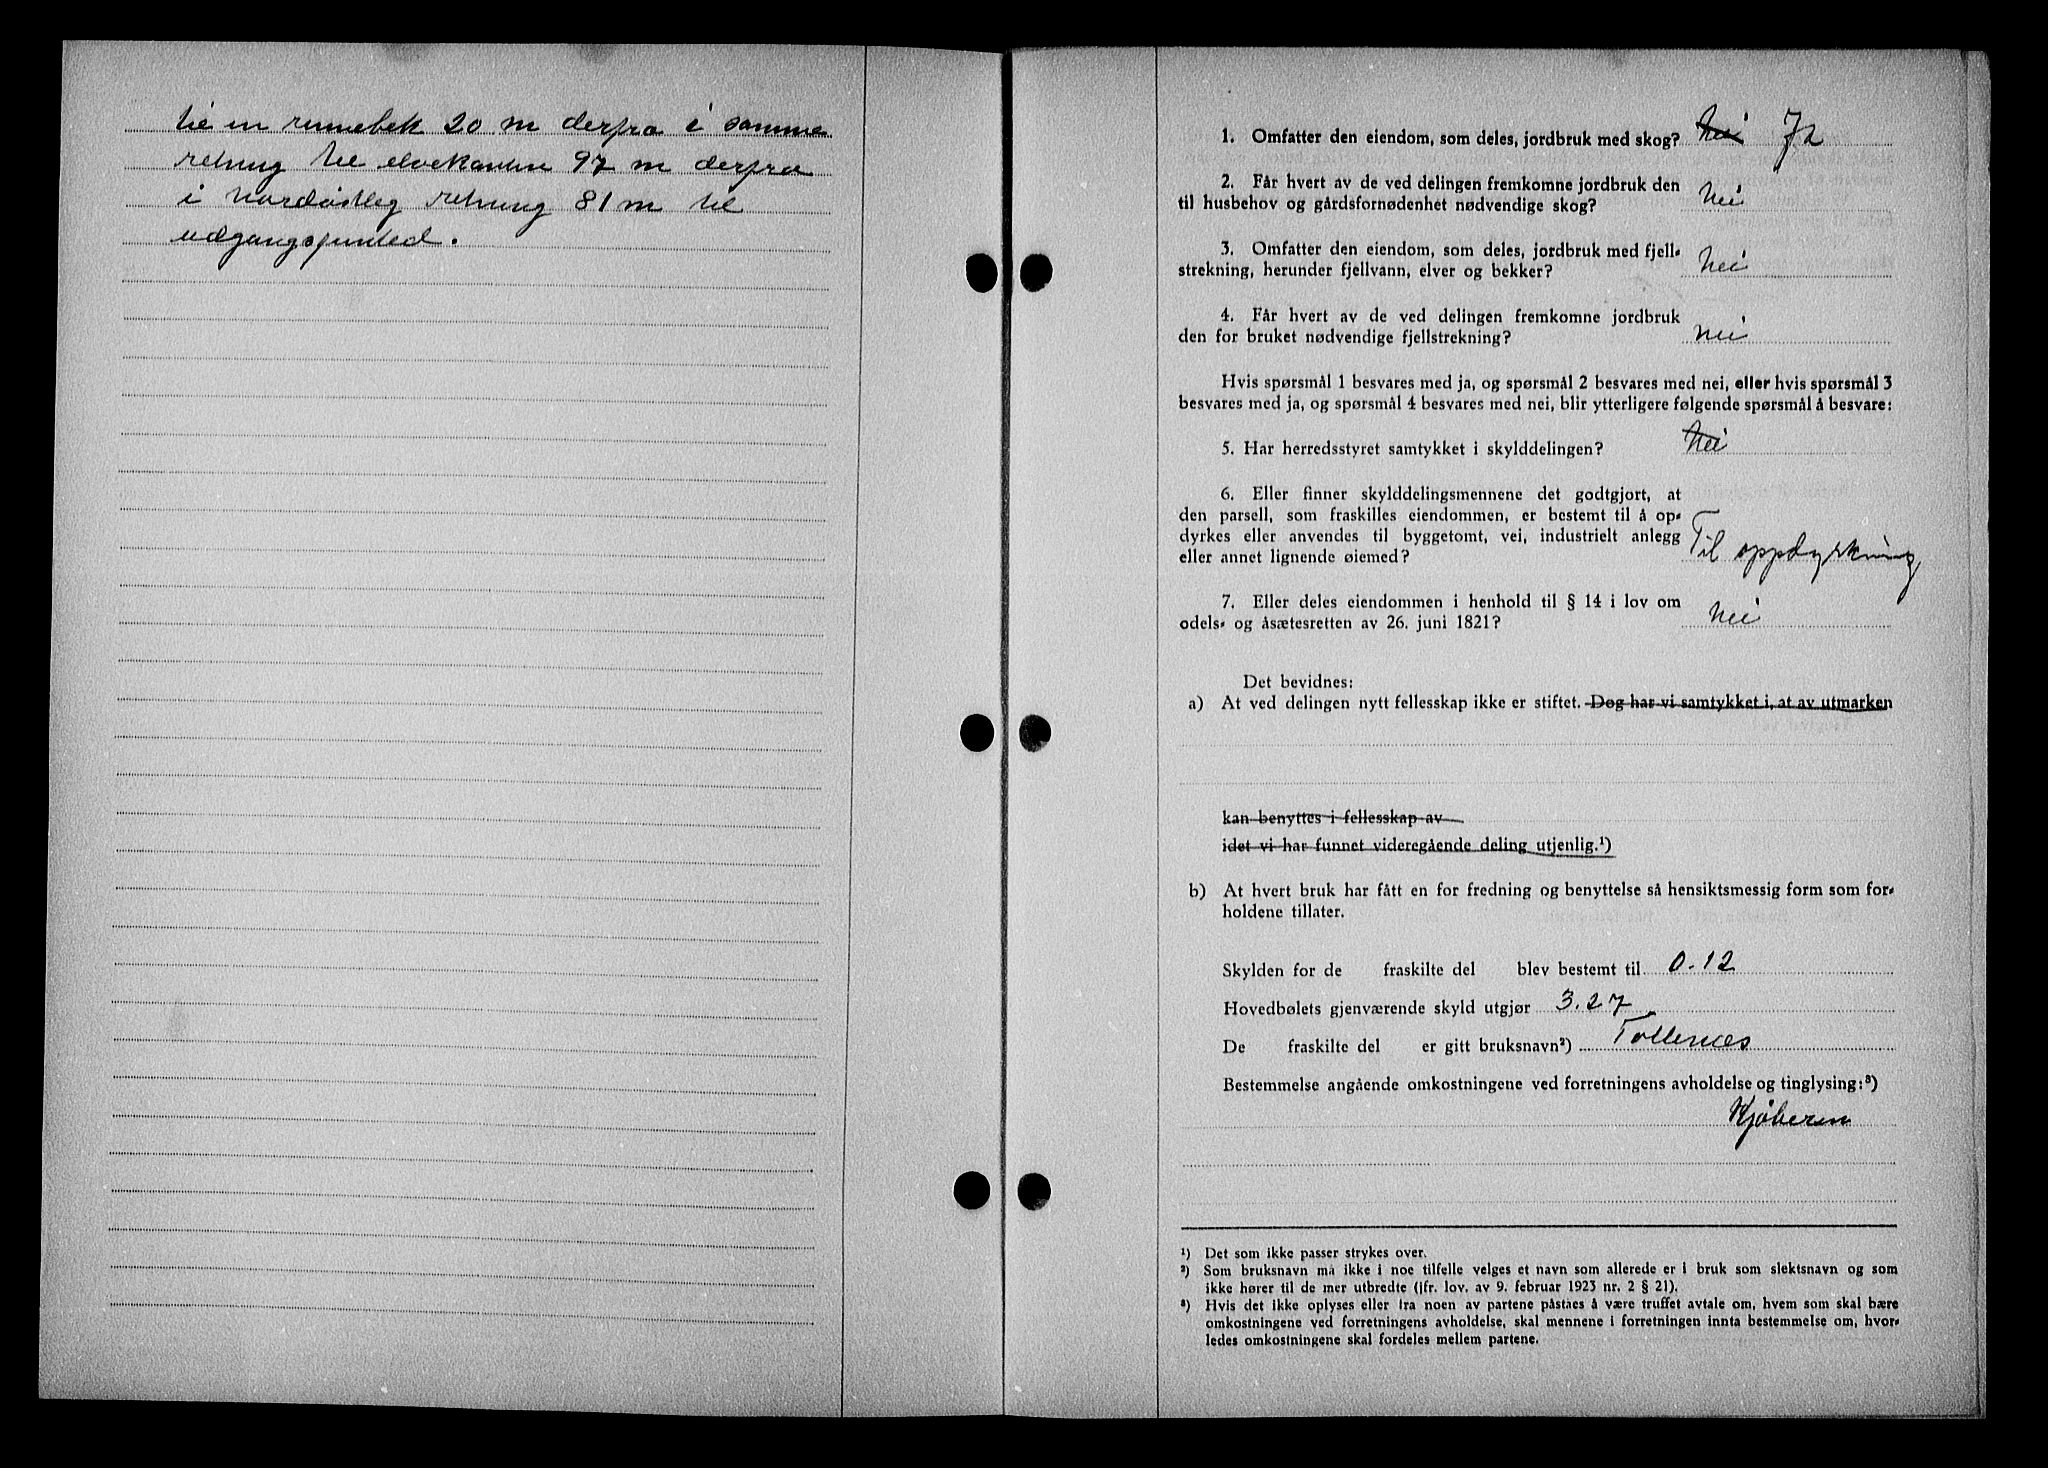 til en rennebek 20 m derfra i samme
retning til elvekanten 97 m derfra
i nordøstleg retning 81 m til
udgangspunted.
1. Omfatter den eiendom, som deles, jordbruk med skog? Nei Ja
2. Får hvert av de ved delingen fremkomne jordbruk den
til husbehov og gårdsfornødenhet nødvendige skog? Nei
3. Omfatter den eiendom, som deles, jordbruk med fjell-
strekning, herunder fjellvann, elver og bekker? Nei
4. Får hvert av de ved delingen fremkomne jordbruk
den for bruket nødvendige fjellstrekning? Nei
Hvis spørsmål 1 besvares med ja, og spørsmål 2 besvares med nei, eller hvis spørsmål 3
besvares med ja, og spørsmål 4 besvares med nei, blir ytterligere følgende spørsmål å besvare:
5. Har herredsstyret samtykket i skylddelingen? Nei
6. Eller finner skylddelingsmennene det godtgjort, at
den parsell, som fraskilles eiendommen, er bestemt til å op-
dyrkes eller anvendes til byggetomt, vei, industrielt anlegg
eller annet lignende øiemed? Til oppdyrkning
7. Eller deles eiendommen i henhold til § 14 i lov om
odels- og åsætesretten av 26. juni 1821? Nei
Det bevidnes:
a) At ved delingen nytt fellesskap ikke er stiftet. Dog har vi samtykket i, at av utmarken
kan benyttes i fellesskap av
idet vi har funnet videregående deling utjenlig.¹)
b) At hvert bruk har fått en for fredning og benyttelse så hensiktsmessig form som for-
holdene tillater.
Skylden for de fraskilte del blev bestemt til 0.12
Hovedbølets gjenværende skyld utgjør 3.27
De fraskilte del er gitt bruksnavn²) Tollernæs
Bestemmelse angående omkostningene ved forretningens avholdelse og tinglysing:³)
Kjøberen
¹) Det som ikke passer strykes over.
²) Som bruksnavn må ikke i noe tilfelle velges et navn som allerede er i bruk som slektsnavn og som
ikke hører til de mer utbredte (jfr. lov. av 9. februar 1923 nr. 2 § 21).
³) Hvis det ikke oplyses eller fra noen av partene påståes å være truffet avtale om, hvem som skal bære
omkostningene ved forretningens avholdelse, skal mennene i forretningen innta bestemmelse om, hvor-
ledes omkostningene skal fordeles mellem partene.